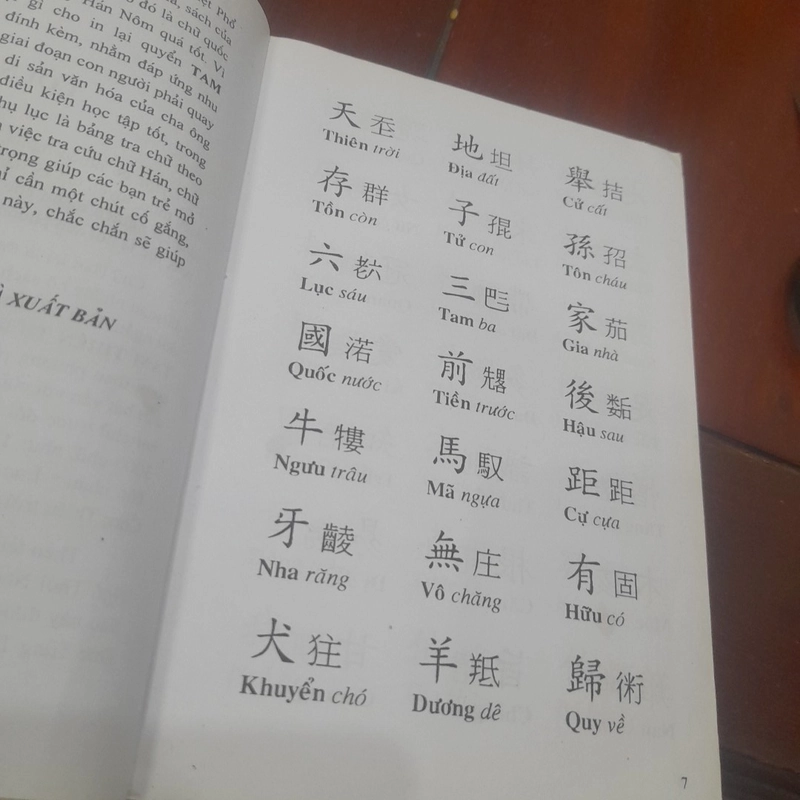 Phổ
sách của
đó là chữ quốc
Hán Nôm quá tốt. Vì
gì cho in lại quyển TAM
đính kèm, nhằm đáp ứng nhu
giai đoạn con người phải quay
di sản văn hóa của cha ông
điều kiện học tập tốt, trong
lục là bảng tra chữ theo
việc tra cứu chữ Hán, chữ
trọng giúp các bạn trẻ mở
cần một chút cố gắng,
này, chắc chắn sẽ giúp
XUẤT BẢN
天 𡗶 地 坦 舉 拮
Thiên trời Địa đất Cử cất
存 群 子 𡥵 孫 𡥙
Tồn còn Tử con Tôn cháu
六 𦒹 三 𠀧 家 茄
Lục sáu Tam ba Gia nhà
國 渃 前 後
Quốc nước Tiền trước Hậu sau
牛 𤛠 馬 馭 距 距
Ngưu trâu Mã ngựa Cự cựa
牙 𪘵 無 庄 有 固
Nha răng Vô chăng Hữu có
犬 㹥 羊 羝 歸 術
Khuyển chó Dương dê Quy về
7